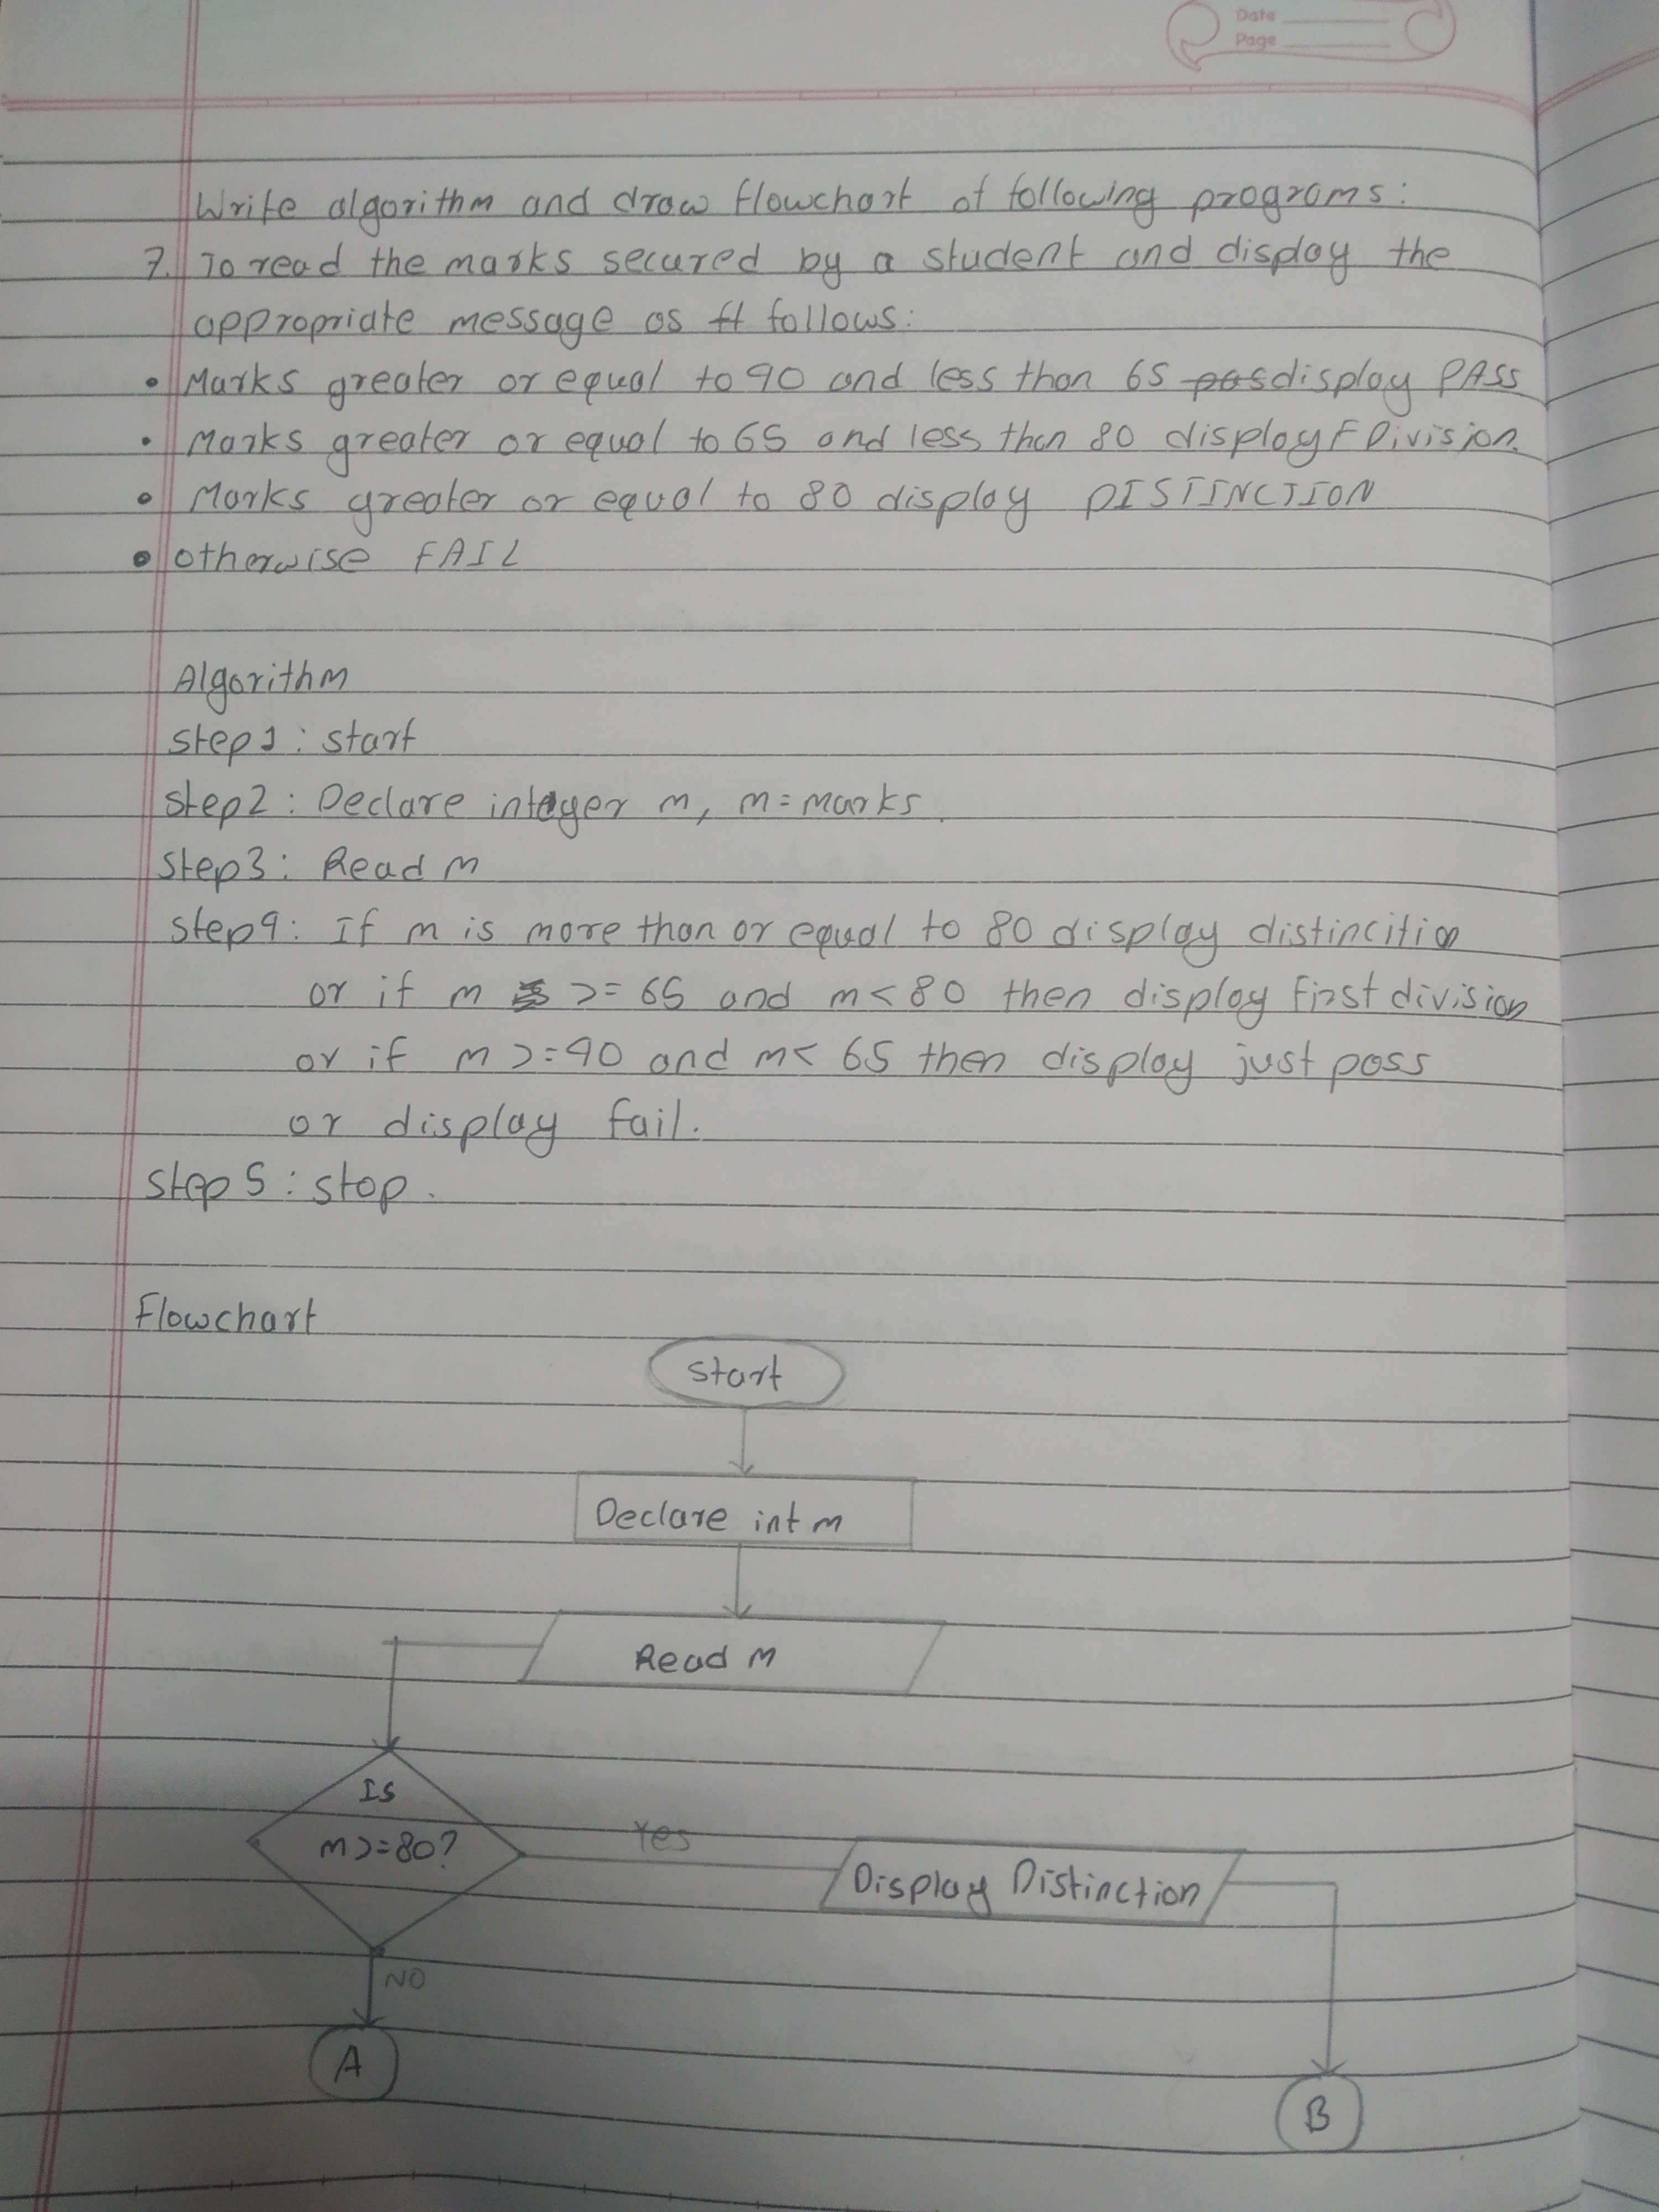 Date
Page
Write algorithm and draw flowchart of following programs:
7. To read the marks secured by a student and display the
appropriate message as ft follows:
• Marks greater or equal to 40 and less than 65 pas display PASS
• Marks greater or equal to 65 and less than 80 display F Division
• Marks greater or equal to 80 display DISTINCTION
• otherwise FAIL
Algorithm
step1: start
step2: Declare integer m, m=marks.
step3: Read m
step4: If m is more than or equal to 80 display distincition
or if m >= 65 and m < 80 then display first division
or if m >= 40 and m < 65 then display just pass
or display fail.
step 5: stop.
Flowchart
start
Declare int m
Read m
Is
m >= 80?
Yes
Display Distinction
NO
A
B